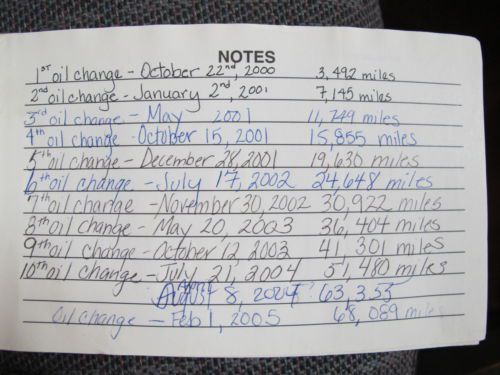 NOTES
1st oil change - October 22nd, 2000 3,492 miles
2nd oil change - January 2nd, 2001 7,145 miles
3rd oil change - May 2001 11,749 miles
4th oil change - October 15, 2001 15,855 miles
5th oil change - December 28, 2001 19,630 miles
6th oil change - July 17, 2002 24,648 miles
7th oil change - November 30, 2002 30,922 miles
8th oil change - May 20, 2003 36,404 miles
9th oil change - October 12, 2003 41,301 miles
10th oil change - July 21, 2004 51,480 miles
August 8, 2004 63,355
Oil change - Feb 1, 2005 68,089 miles